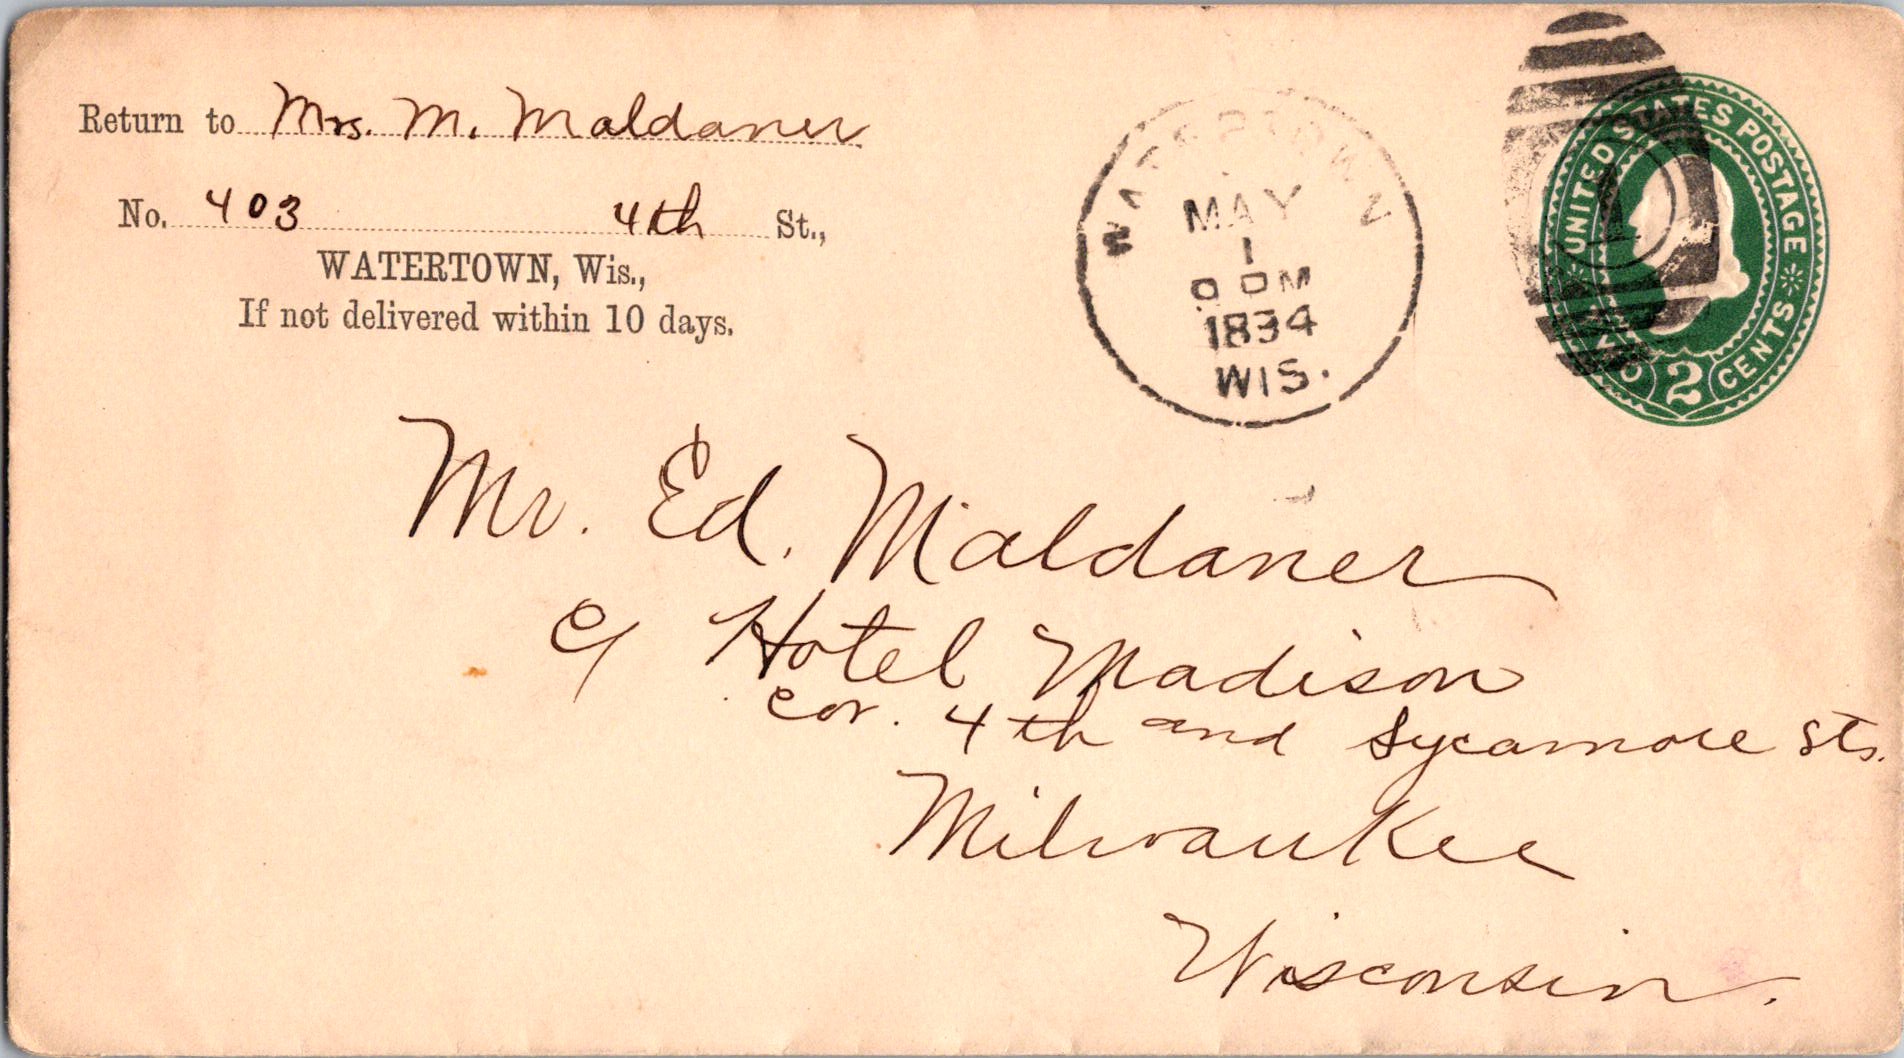 Return to Mrs. M. Maldaner
No. 403 4th St.,
WATERTOWN, Wis.,
If not delivered within 10 days.
WATERTOWN
MAY
1
PM
1894
WIS.
UNITED STATES POSTAGE
TWO 2 CENTS
1
Mr. Ed. Maldaner
c/ Hotel Madison
cor. 4th and Sycamore Sts.
Milwaukee
Wisconsin.